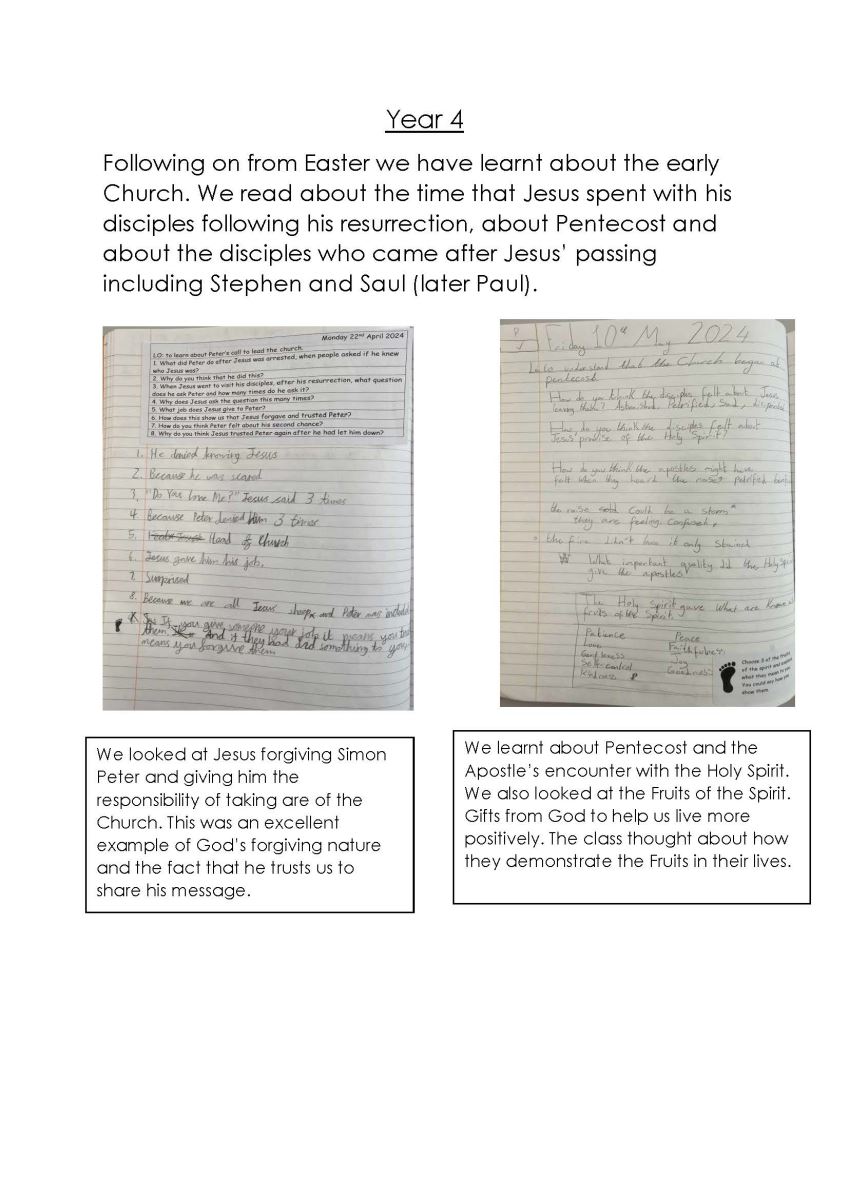 Year 4
Following on from Easter we have learnt about the early
Church. We read about the time that Jesus spent with his
disciples following his resurrection, about Pentecost and
about the disciples who came after Jesus' passing
including Stephen and Saul (later Paul).
Monday 22nd April 2024
LO: to learn about Peter's call to lead the church.
1. What did Peter do after Jesus was arrested, when people asked if he knew
who Jesus was?
2. Why do you think that he did this?
3. When Jesus went to visit his disciples, after his resurrection, what question
does he ask Peter and how many times do he ask it?
4. Why does Jesus ask the question this many times?
5. What job does Jesus give to Peter?
6. How does this show us that Jesus forgave and trusted Peter?
7. How do you think Peter felt about his second chance?
8. Why do you think Jesus trusted Peter again after he had let him down?
1. He denied knowing Jesus
2. Because he was scared
3. "Do You Love Me?" Jesus said 3 times
4. Because Peter denied him 3 times
5. Head of Church
6. Jesus gave him his job.
7. Surprised
8. Because we are all Jesus sheep and Peter was included
If you give someone your job it means you
them. And if they had did something to you
means you forgive them
Friday 10th May 2024
Lo to understand that the Church began at
pentecost
How do you think the disciples felt about Jesus
leaving them? Astonished, Petrified, Sad,
How do you think the disciples felt about
Jesus' promise of the Holy Spirit?
How do you think the apostles might have
felt when they heard the noise? petrified
the noise could be a storm
they are feeling confused,
the fire didn't it only stained
What important quality did the Holy
give the apostles?
The Holy Spirit gave what are
fruits of the Spirit.
Patience
Peace
Love
Faithfulness
Gentleness
Joy
Self-control
Goodness
Kindness
Choose 3 of the fruits
of the spirit and
what they mean to
You could say how you
show them.
We looked at Jesus forgiving Simon
Peter and giving him the
responsibility of taking are of the
Church. This was an excellent
example of God's forgiving nature
and the fact that he trusts us to
share his message.
We learnt about Pentecost and the
Apostle's encounter with the Holy Spirit.
We also looked at the Fruits of the Spirit.
Gifts from God to help us live more
positively. The class thought about how
they demonstrate the Fruits in their lives.